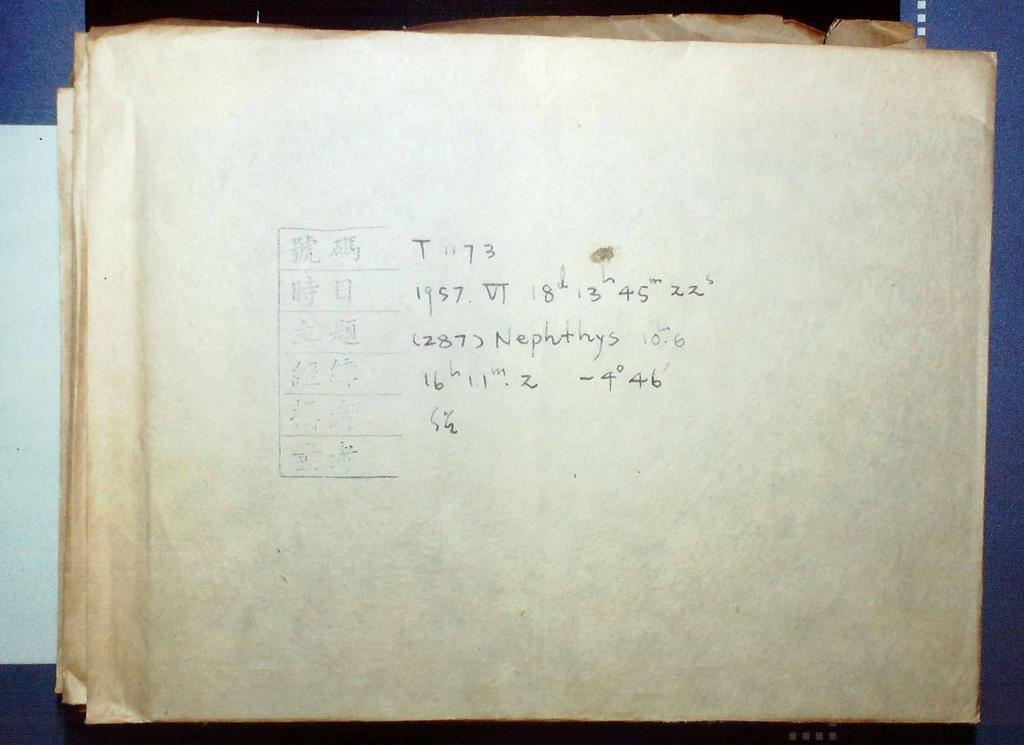 號碼 T 1173
時日 1957. VI 18d 13h 45m 22s
主題 (287) Nephthys 10m.6
經緯 16h 11m.2 -4° 46'